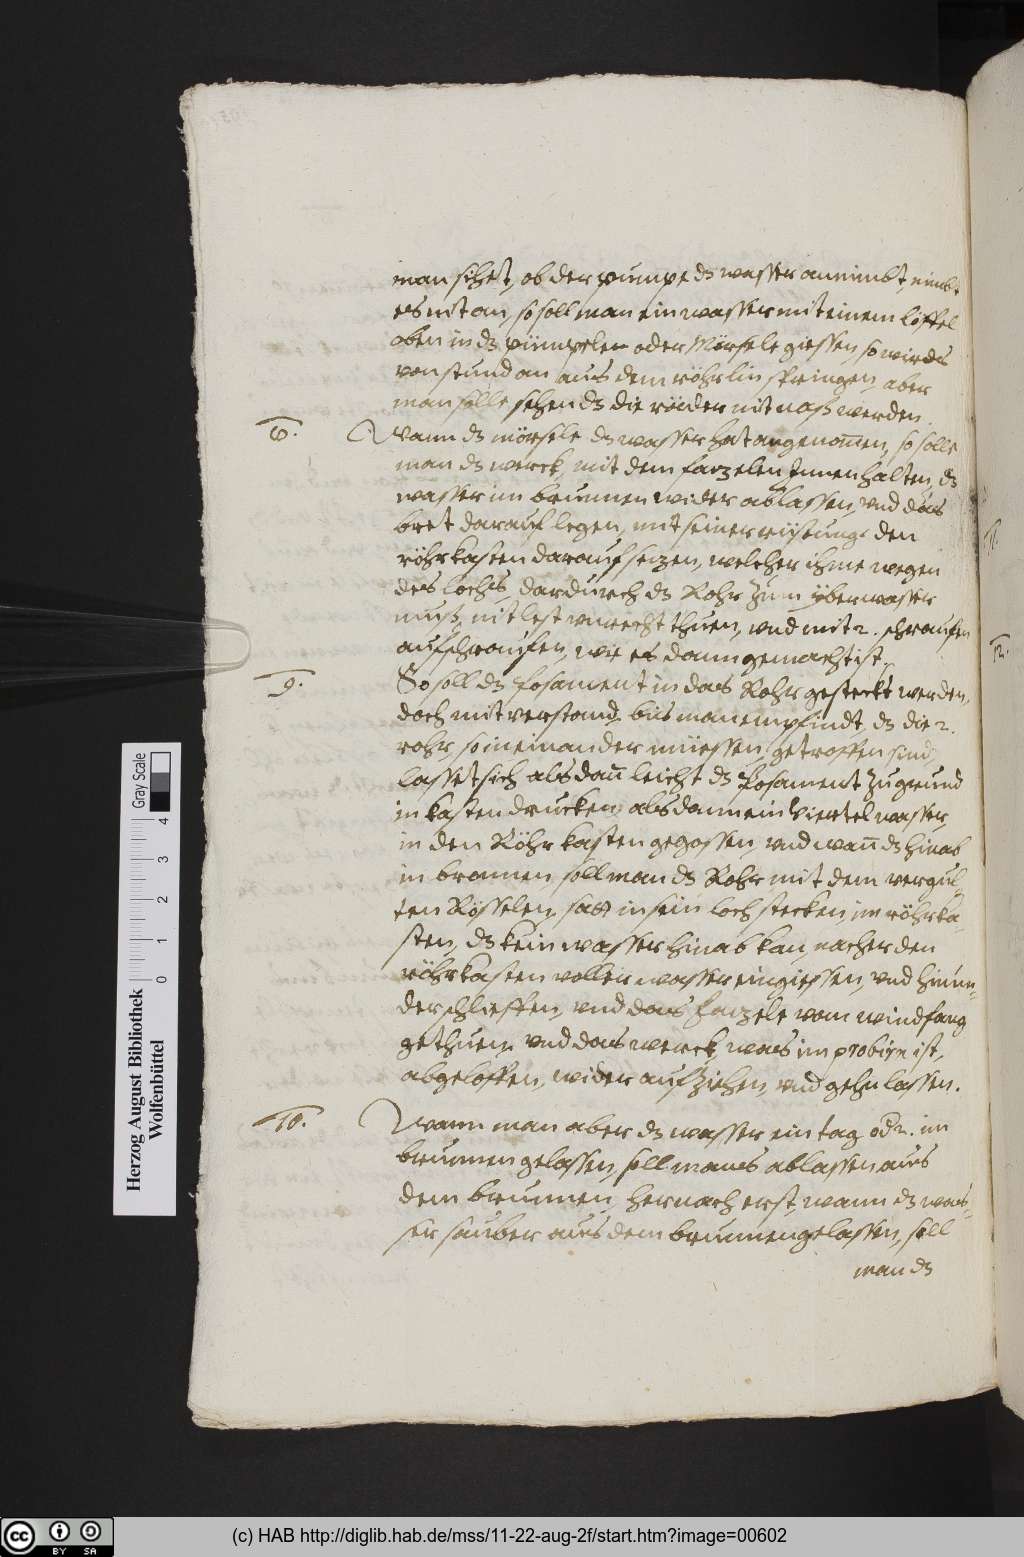 man sihet, ob der pumpe dz wasser annimbt, nimbt
es nit an, so soll man ein wasser mit einem löffel
oben in dz pümpelen oder Mörsele giessen, so wird es
von stund an aus dem röhrlin springen, aber
man solle sehen dz die räder nit naß werden.
8. Wann dz mörsele dz wasser hat angenom̅en, so solle
man dz werck, mit dem farzelen Innenhalten, dz
wasser im brunnen wider ablassen, vnd das
bret darauf legen, mit seiner rüstung. den
röhrkasten darauf sezen, welcher ihme wegen
des lochs, dardurch dz Rohr zum yberwasser
muß, nit lest vnrecht thuen, vnd mit 2. schraufen
aufschraufen, wie es dann gemacht ist.
9. So soll dz Posament in das Rohr gesteckt werden,
doch mit verstand, bis man empfindt, dz die 2.
rohr, so in einander müessen, getroffen sind,
lasset sich alsdan̅ leicht dz Posament zu grund
in kasten drucken, alsdann ein Viertel wasser,
in den Röhrkasten gegossen, vnd wan̅ dz hinab
in bronnen, soll man dz Rohr mit dem vergul-
ten Rösselen, satt in sein loch stecken, im röhrka-
sten, dz kein wasser hinab kan, nacher den
röhrkasten voller wasser eingiessen, vnd hinun-
der schlieffen, vnd das farzele vom windfang
gethuen, vnd das werck, was im probirn ist,
abgeloffen, wider aufziehen, vnd gehn lassen.
10. Wann man aber dz wasser ein tag od 2. im
brunnen gelassen, soll mans ablassen aus
dem brunnen, hernach erst, wann dz was-
ser sauber aus dem brunnen gelassen, soll
man dz
11.
12.
Herzog August Bibliothek
Wolfenbüttel
0 1 2 3 4
Gray Scale
cc BY SA
(c) HAB http://diglib.hab.de/mss/11-22-aug-2f/start.htm?image=00602